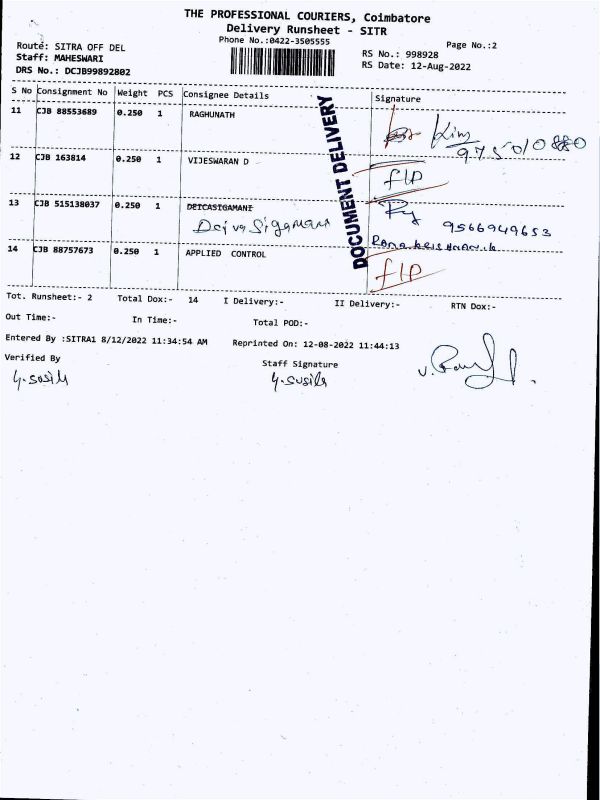 THE PROFESSIONAL COURIERS, Coimbatore
Delivery Runsheet - SITR
Phone No.:0422-3505555
Page No.:2
Route: SITRA OFF DEL
RS No.: 998928
Staff: MAHESWARI
RS Date: 12-Aug-2022
DRS No.: DCJB99892802
S No Consignment No Weight PCS Consignee Details Signature
11 CJB 88553689 0.250 1 RAGHUNATH
12 CJB 163814 0.250 1 VIJESWARAN D
f1P
13 CJB 515138037 0.250 1 DEICASIGAMANI
Deiva Sigamani
9566949653
14 CJB 88757673 0.250 1 APPLIED CONTROL
f1P
DOCUMENT DELIVERY
Tot. Runsheet:- 2 Total Dox:- 14 I Delivery:- II Delivery:- RTN Dox:-
Out Time:- In Time:- Total POD:-
Entered By :SITRA1 8/12/2022 11:34:54 AM Reprinted On: 12-08-2022 11:44:13
Verified By Staff Signature
y.susila y.susila